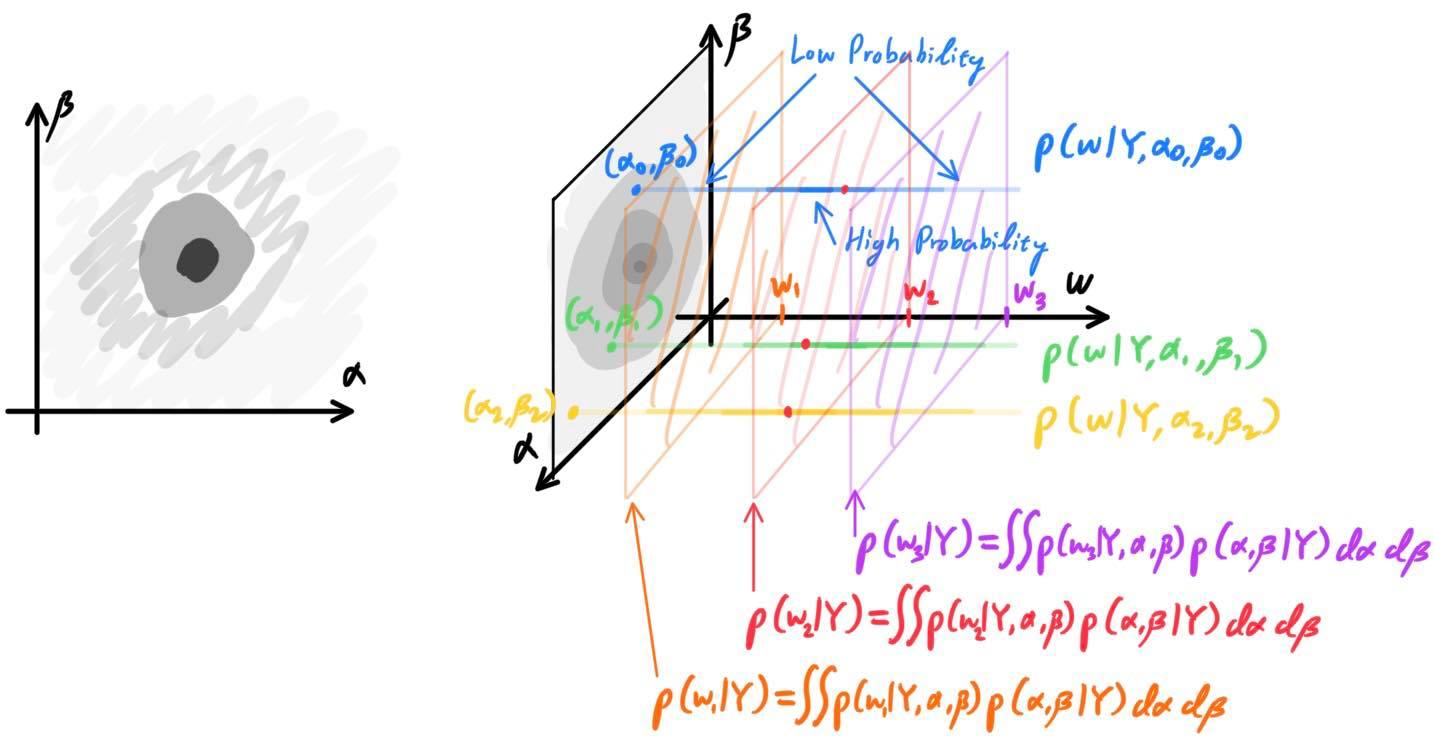 β
α
β
Low Probability
p(w|Y,α₀,β₀)
(α₀,β₀)
High Probability
w₁
w₂
w₃
w
(α₁,β₁)
p(w|Y,α₁,β₁)
(α₂,β₂)
p(w|Y,α₂,β₂)
α
p(w₃|Y)=∫∫p(w₃|Y,α,β)p(α,β|Y)dα dβ
p(w₂|Y)=∫∫p(w₂|Y,α,β)p(α,β|Y)dα dβ
p(w₁|Y)=∫∫p(w₁|Y,α,β)p(α,β|Y)dα dβ